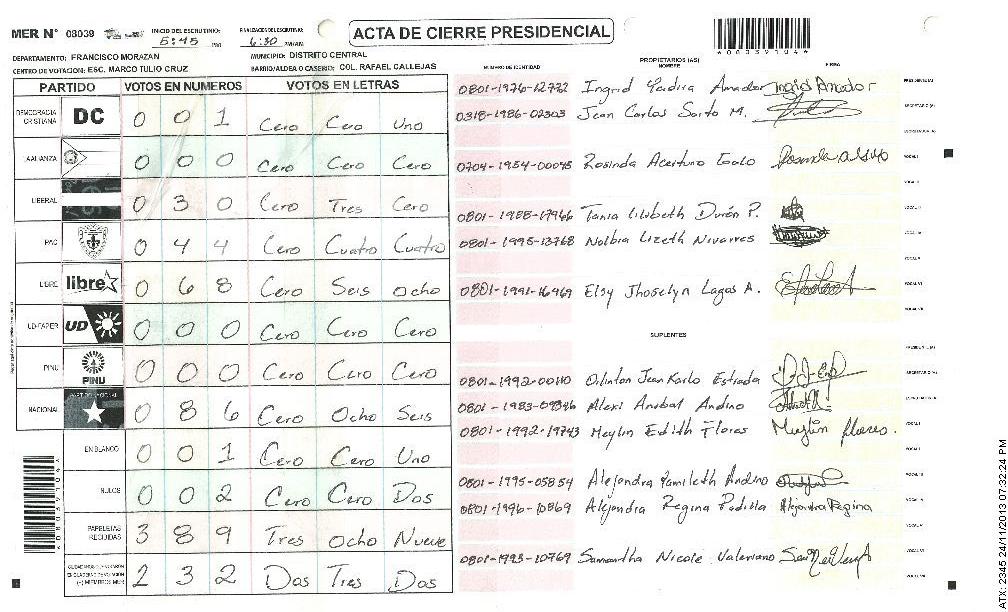 MER N° 08039
INICIO DEL ESCRUTINIO: 5:45 PM
FINALIZACION DEL ESCRUTINIO: 6:30 PM/AM
ACTA DE CIERRE PRESIDENCIAL
DEPARTAMENTO: FRANCISCO MORAZAN
MUNICIPIO: DISTRITO CENTRAL
CENTRO DE VOTACION: ESC. MARCO TULIO CRUZ
BARRIO/ALDEA O CASERIO: COL. RAFAEL CALLEJAS
PARTIDO VOTOS EN NUMEROS VOTOS EN LETRAS
DEMOCRACIA CRISTIANA DC 0 0 1 Cero Cero Uno
LA ALIANZA 0 0 0 Cero Cero Cero
LIBERAL 0 3 0 Cero Tres Cero
PAC 0 4 4 Cero Cuatro Cuatro
LIBRE libre 0 6 8 Cero Seis Ocho
UD-FAPER UD 0 0 0 Cero Cero Cero
PINU PINU 0 0 0 Cero Cero Cero
NACIONAL 0 8 6 Cero Ocho Seis
EN BLANCO 0 0 1 Cero Cero Uno
NULOS 0 0 2 Cero Cero Dos
PAPELETAS RECIBIDAS 3 8 9 Tres Ocho Nueve
2 3 2 Dos Tres Dos
NUMERO DE IDENTIDAD
PROPIETARIOS (AS)
NOMBRE
FIRMA
0801-1976-12772 Ingrid Yadira Amador Ingrid Amador
PRESIDENTE(A)
0318-1986-02303 Jean Carlos Soto M.
SECRETARIO (A)
0704-1954-00045 Rosinda
VOCAL I
0801-1988-17966 Tania Lizbeth Durón P.
0801-1995-13768 Nolbia Lizeth Nivarres
0801-1991-16969 Elsy Jhoselyn Lagos A.
SUPLENTES
PRESIDENTE (A)
0801-1992-00110 Orlinton Jean Karlo Estrada
SECRETARIO (A)
Alexi Anibal Andino
0801-1992-19743 Meylin Edith Flores Meylin flores.
0801-1995-05854 Alejandra Yamileth Andino
0801-1996-10869 Alejandra Regina Padilla Alejandra Regina
0801-1993-10769 Samantha Nicole Valeriano
ATX: 2345 24/11/2013 07:32:24 PM